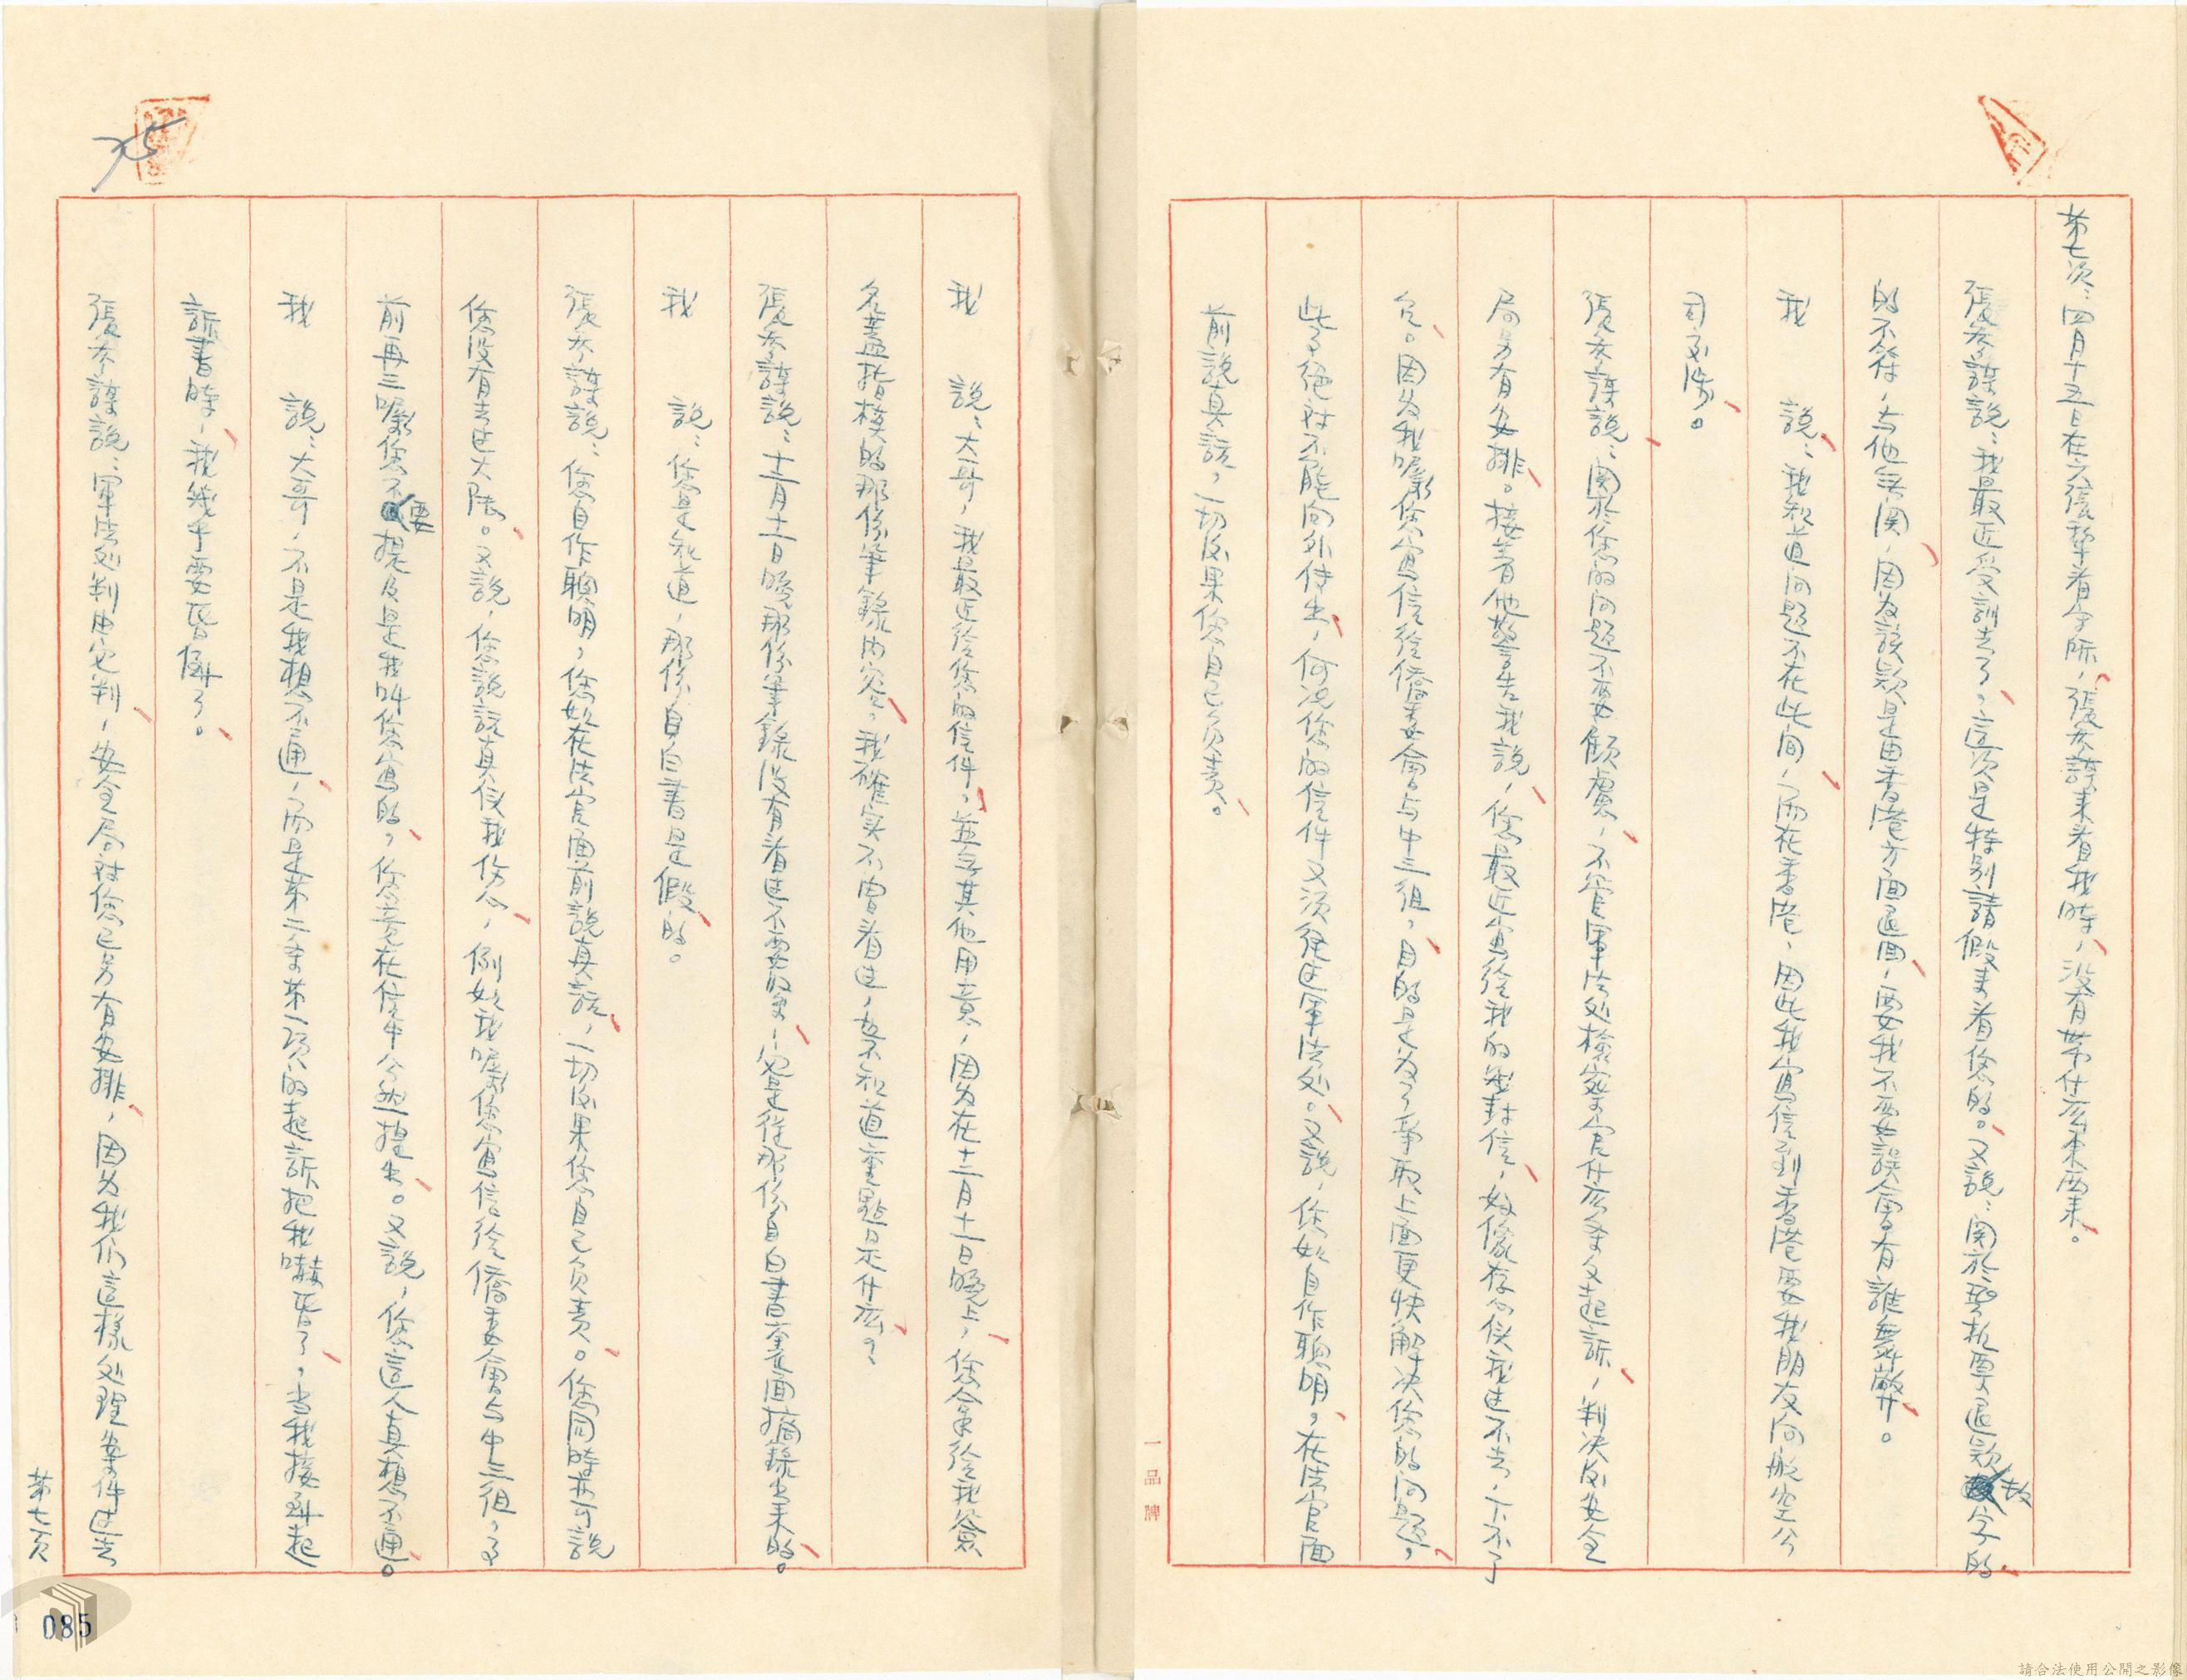 第七次：四月十五日在六張犁看守所，張參謀來看我時，沒有帶什么東西來。
張參謀說：我最近受訓去了，這次是特別請假來看您的。又說：関於契机票退款数字的
的不符，与他無関，因为該款是由香港方面退回，要我不要誤會有誰舞弊。
我　說：我知道问题不在此间，而在香港，因此我寫信到香港要我朋友向航空公
司交涉。
張參謀說：関於您的问题不要顧慮，不管軍法处檢察官什么条文起訴，判决後安全
局另有安排。接着他警告我說，您最近寫给我的幾封信，好像存心使我过不去，下不了
台。因为我囑您寫信给僑委會与中三组，目的是为了爭取上面更快解决您的问题，
此事絕对不能向外传出，何况您的信件又須経过軍法处。又說，您如自作聰明，在法官面
前說真話，一切後果您自己负责。
一品牌
我　說：大哥，我最近给您的信件，並無其他用意，因为在十二月十一日晚上，您拿给我簽
名蓋指模的那份筆錄内容，我確实不曾看过，並不知道重點是什么？
張參謀說：十二月十一日晚那份筆錄没有看过不要緊，它是從那份自白書裏面摘錄出來的。
我　說：您是知道，那份自白書是假的。
張參謀說：您自作聰明，您如在法官面前說真話，一切後果您自己负责。您同時亦可說
您没有去过大陸。又說，您說話真使我伤心，例如我囑您寫信给僑委會与中三组，事
前再三囑您不要提及是我叫您寫的，您竟在信中公然提出。又說，您這人真想不通。
我　說：大哥，不是我想不通，而是第二条第一項的起訴把我嚇昏了，当我接到起
訴書時，我幾乎要昏倒了。
張參謀說：軍法处判由它判，安全局对您已另有安排，因为我们這樣处理案件过去
第七页
085
請合法使用公開之影像